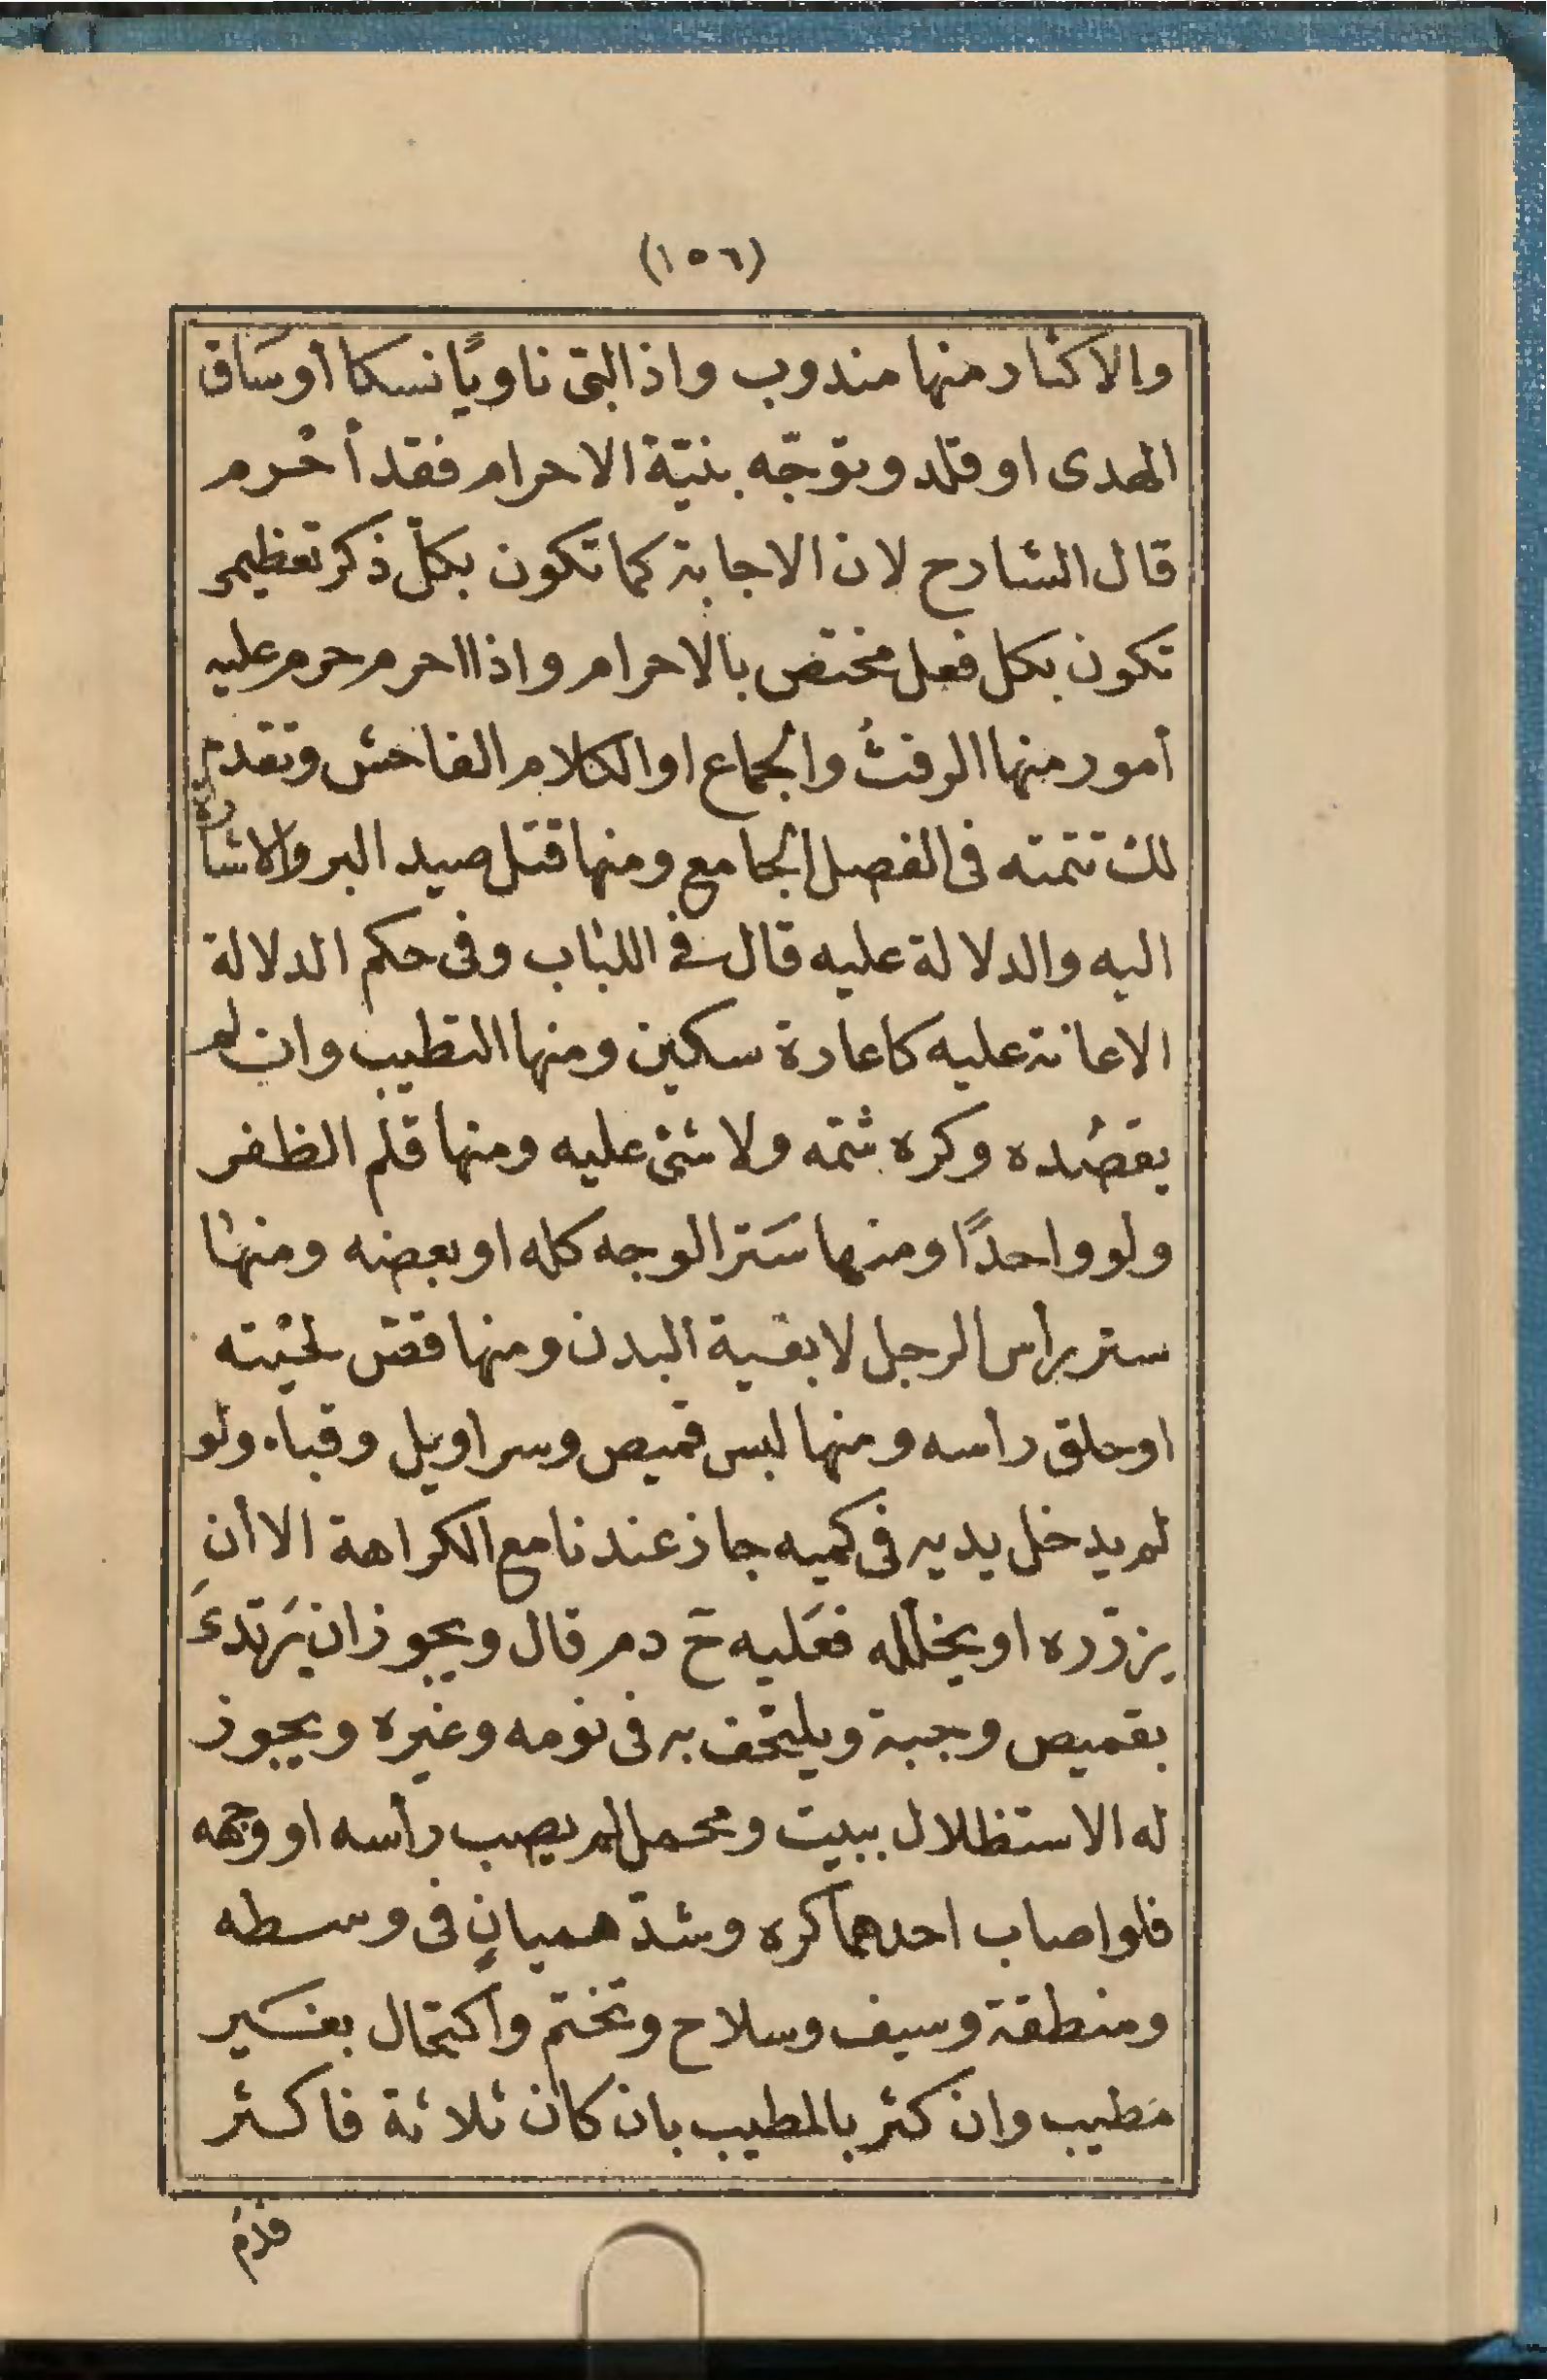 (١٥٦)
والاكثار منها مندوب واذا لبّى ناويًا نسكا أو سَاق
الهدى او قلد وتوجّه بنيّة الاحرام فقد أحْرم
قال الشارح لان الاجابة كما تكون بكلّ ذكر تعظيم
تكون بكل فعل مختص بالاحرام واذا احرم حرم عليه
أمور منها الرفثُ والجماع او الكلام الفاحش وتقدم
لك تتمته فى الفصل الجامع ومنها قتل صيد البر والاشارة
اليه والدلالة عليه قال في اللبَاب وفى حكم الدلالة
الاعانة عليه كاعارة سكين ومنها التطيب وان لم
يقصُده وكره شمّه ولا شئ عليه ومنها قلم الظفر
ولو واحدًا ومنها سَتر الوجه كله او بعضه ومنهَا
ستر رأس الرجل لا بقية البدن ومنها قصّ لحيْته
او حلق رأسه ومنها لبس قميص وسراويل وقباء ولو
لم يدخل يديه فى كميه جاز عندنا مع الكراهة الا أن
يزرّره او يخلله فعَليه ح دم قال ويجوز ان يَرتدىَ
بقميص وجبة ويلتحف به فى نومه وغيره ويجوز
له الاستظلال ببيت ومحمل لم يصب رأسه او وجهه
فلو اصاب احدهما كره وشدّ هميانٍ فى وسطه
ومنطقة وسيف وسلاح وتختم واكتحال بغَير
مطيب وان كثر بالمطيب بان كان ثلاثة فاكثر
فدَم